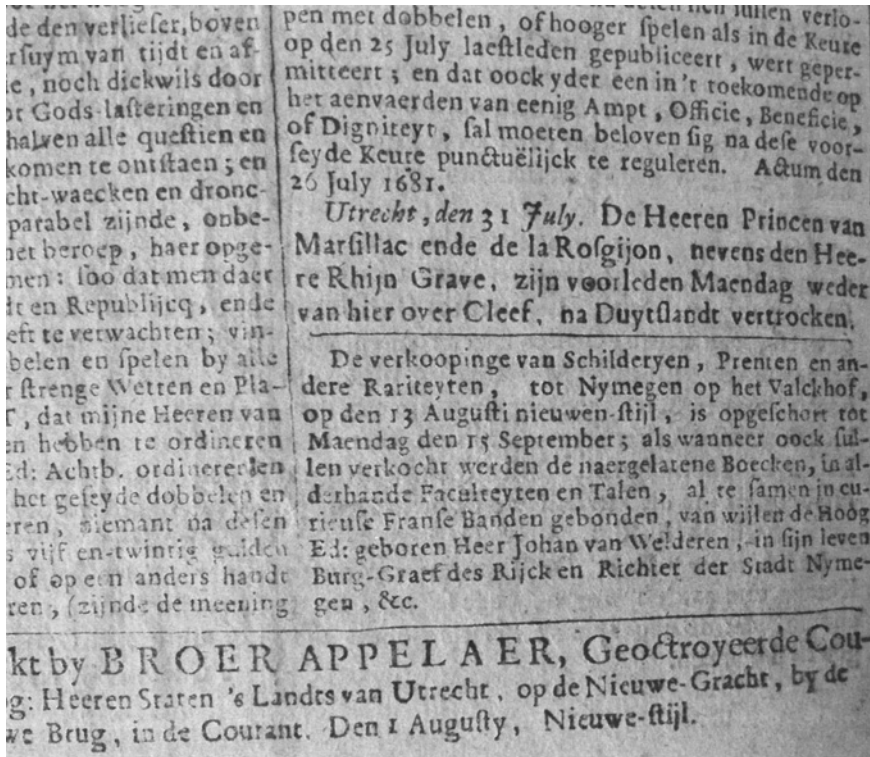 de den verlieser, boven
rsuym van tijdt en af-
e, noch dickwils door
ot Gods-lasteringen en
halven alle questien en
komen te ontstaen; en
cht-waecken en dronc-
parabel zijnde, onbe-
het beroep, haer opge-
men: soo dat men daer
dt en Republijcq, ende
eft te verwachten; vin-
belen en spelen by alle
r strenge Wetten en Pla-
T, dat mijne Heeren van
en hebben te ordineren
Ed: Achtb. ordinererden
het geseyde dobbelen en
eren, niemant na desen
s vijf-en-twintig guiden
of op een anders handt
ren, (zijnde de meening
pen met dobbelen, of hooger spelen als in de Keure
op den 25 July laestleden gepubliceert, wert geper-
mitteert; en dat oock yder een in 't toekomende op
het aenvaerden van eenig Ampt, Officie, Beneficie,
of Digniteyt, sal moeten beloven sig na dese voor-
seyde Keure punctuëlijck te reguleren. Actum den
26 July 1681.
Utrecht, den 31 July. De Heeren Princen van
Marsillac ende de la Rosgijon, nevens den Hee-
re Rhijn Grave, zijn voorleden Maendag weder
van hier over Cleef, na Duytslandt vertrocken.
De verkoopinge van Schilderyen, Prenten en an-
dere Rariteyten, tot Nymegen op het Valckhof,
op den 13 Augusti nieuwen-stijl, is opgeschort tot
Maendag den 15 September; als wanneer oock sul-
len verkocht werden de naergelatene Boecken, in al-
derhande Faculteyten en Talen, al te samen in cu-
rieuse Franse Banden gebonden, van wijlen de Hoog
Ed: geboren Heer Johan van Welderen, in sijn leven
Burg-Graef des Rijck en Richter der Stadt Nyme-
gen, &c.
kt by BROER APPELAER, Geoctroyeerde Cou-
g: Heeren Staten 's Landts van Utrecht, op de Nieuwe-Gracht, by de
we Brug, in de Courant. Den 1 Augusty, Nieuwe-stijl.